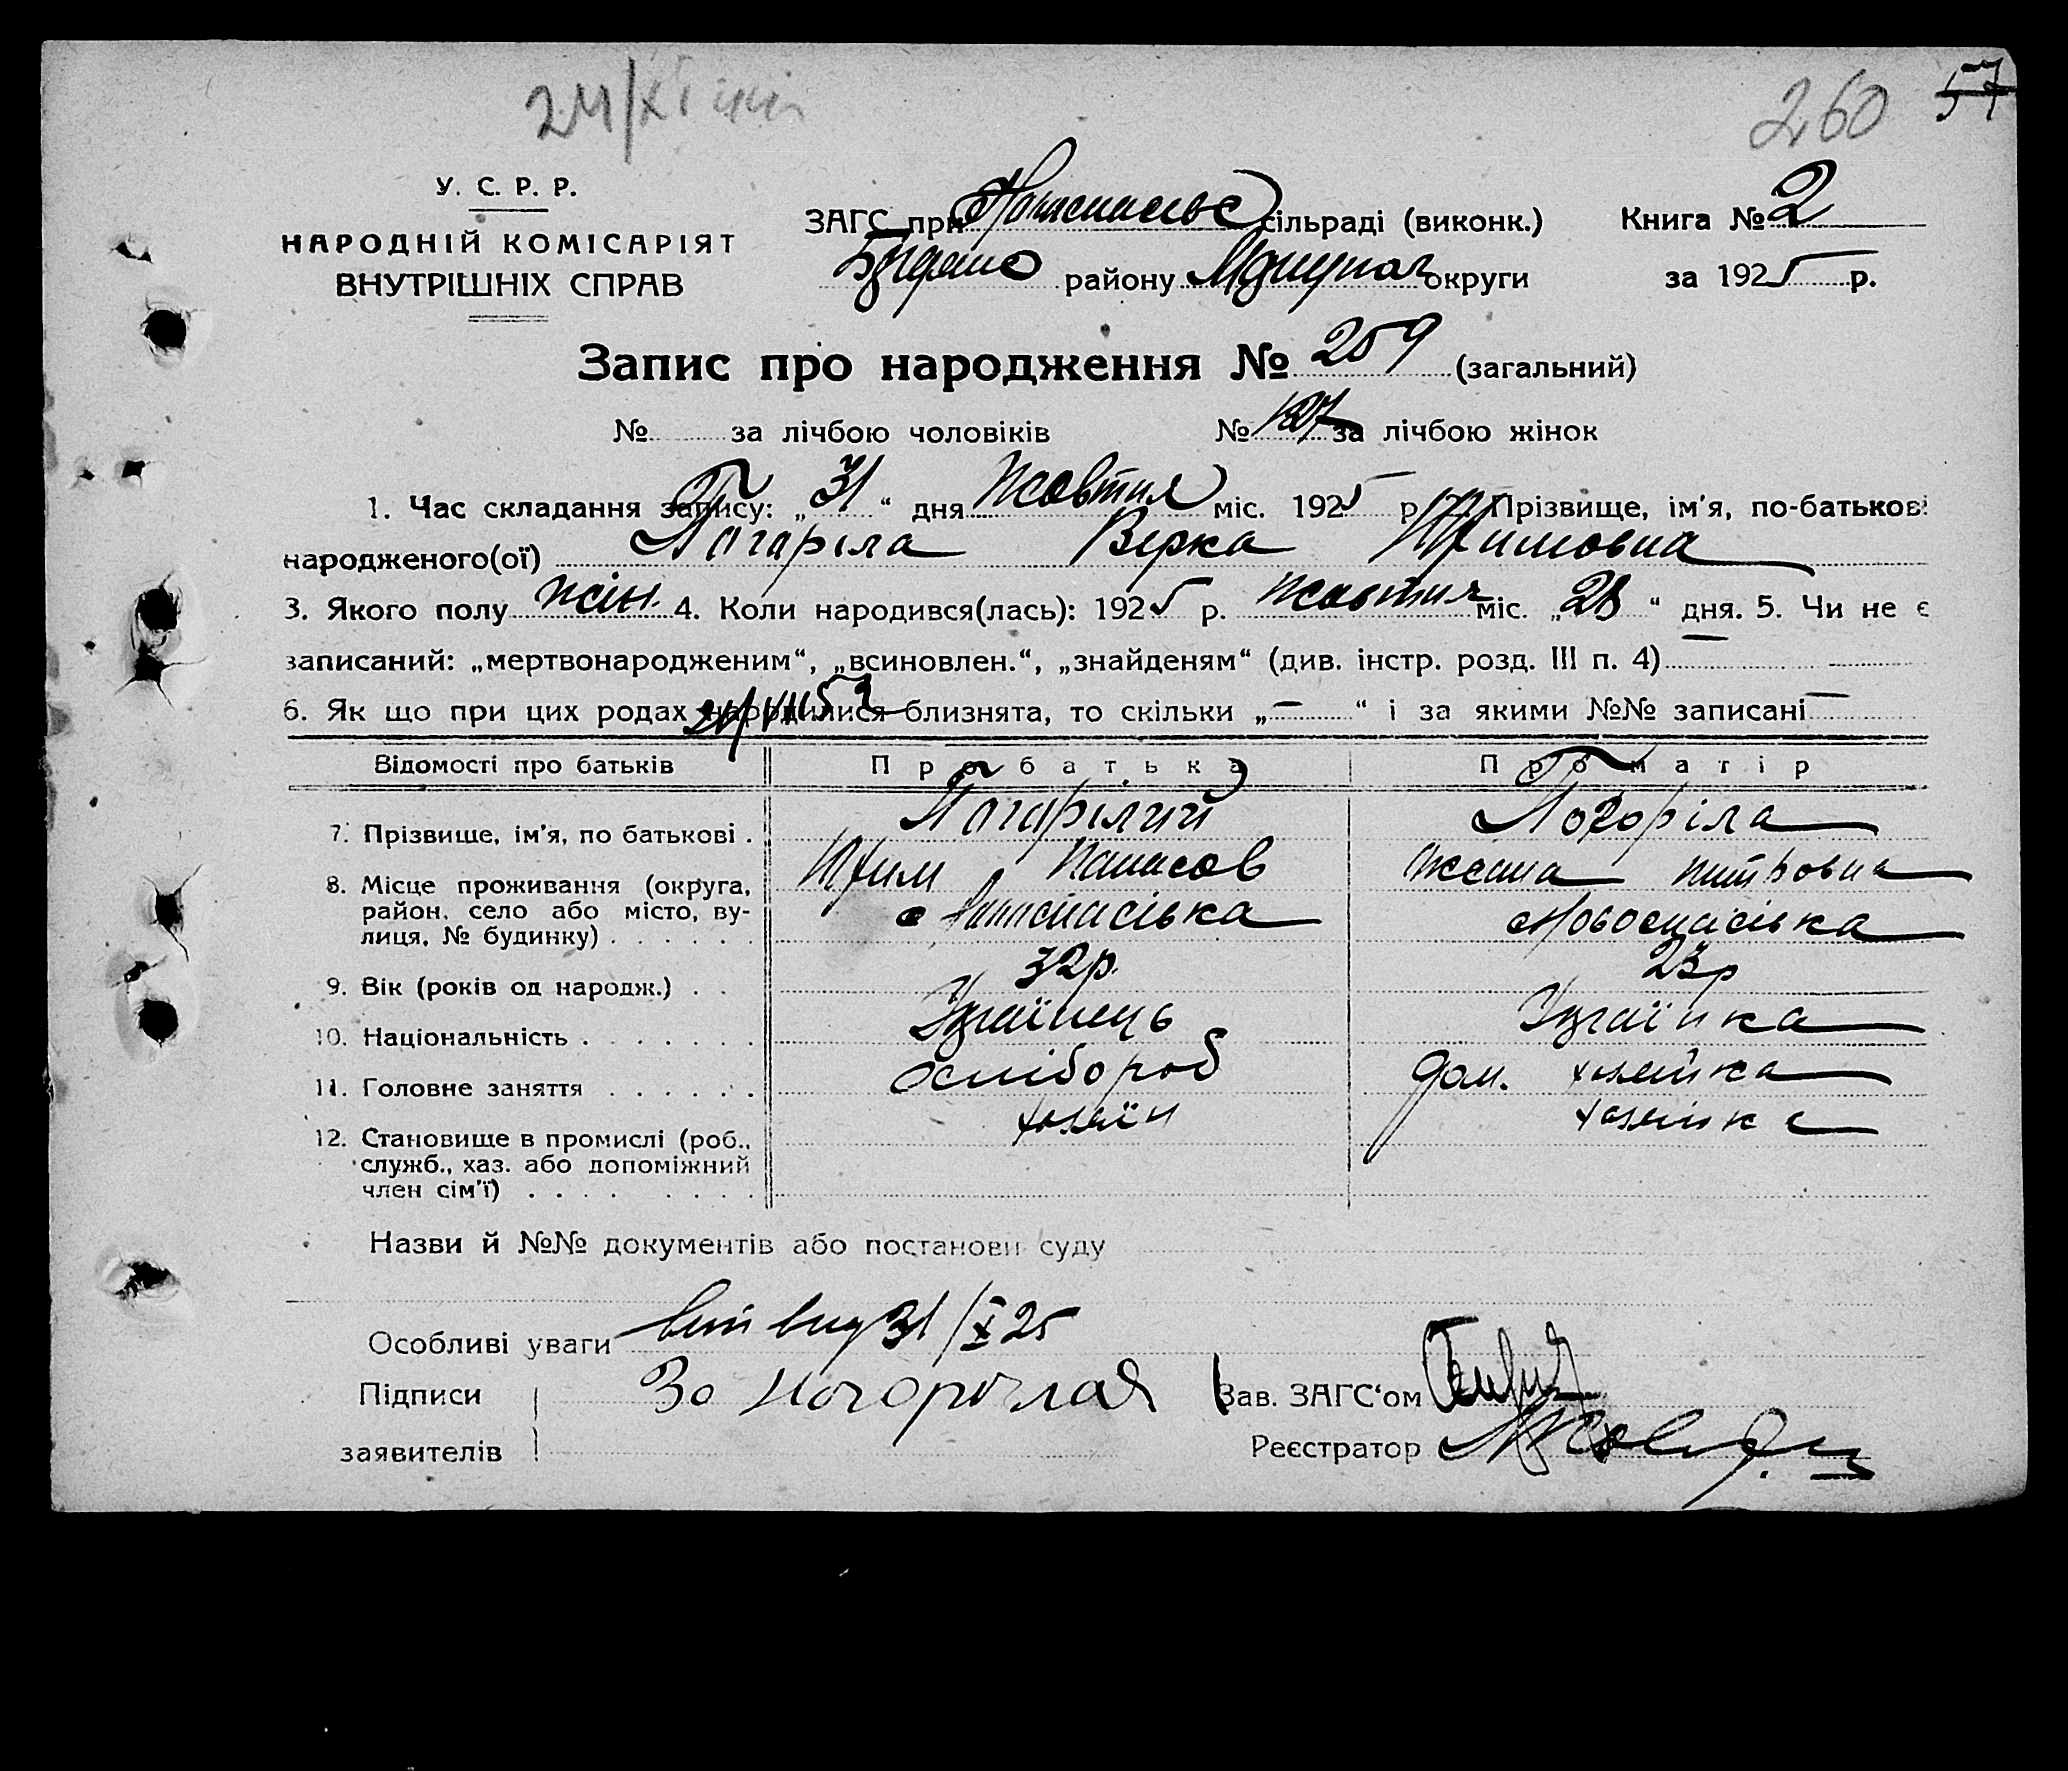 24/XI
260 57
У. С. Р. Р.
НАРОДНІЙ КОМІСАРІЯТ
ВНУТРІШНІХ СПРАВ
ЗАГС при Новоспасівс сільраді (виконк.) Книга № 2
району Маріупол округи за 1925 р.
Запис про народження № 259 (загальний)
№ за лічбою чоловіків № 127 за лічбою жінок
1. Час складання запису: „31“ дня Жовтня міс. 1925 р. 2. Прізвище, ім'я, по-батькові
народженого(ої) Погоріла Вірка Юхимовна
3. Якого полу жін. 4. Коли народився(лась): 1925 р. жовтня міс. „28“ дня. 5. Чи не є
записаний: „мертвонародженим“, „всиновлен.“, „знайденям“ (див. інстр. розд. III п. 4) —
6. Як що при цих родах народилися близнята, то скільки „—“ і за якими №№ записані —
Відомості про батьків Про батька Про матір
7. Прізвище, ім'я, по батькові . Погорілий Погоріла
Юхим Панасов Питровна
8. Місце проживання (округа, район, село або місто, вулиця, № будинку) . . . . . . Новоспасівка Новоспасівка
9. Вік (років од народж.) . . 32р. 23р
10. Національність . . . . . . . Українець Українка
11. Головне заняття . . . . . . хлібороб дом. хозяйка
12. Становище в промислі (роб., служб., хаз. або допоміжний член сім'ї) . . . . . . . . хозяїн хозяйка
Назви й №№ документів або постанови суду
Особливі уваги 31/X 25
Підписи За Погорілая Зав. ЗАГС'ом
заявителів Реєстратор